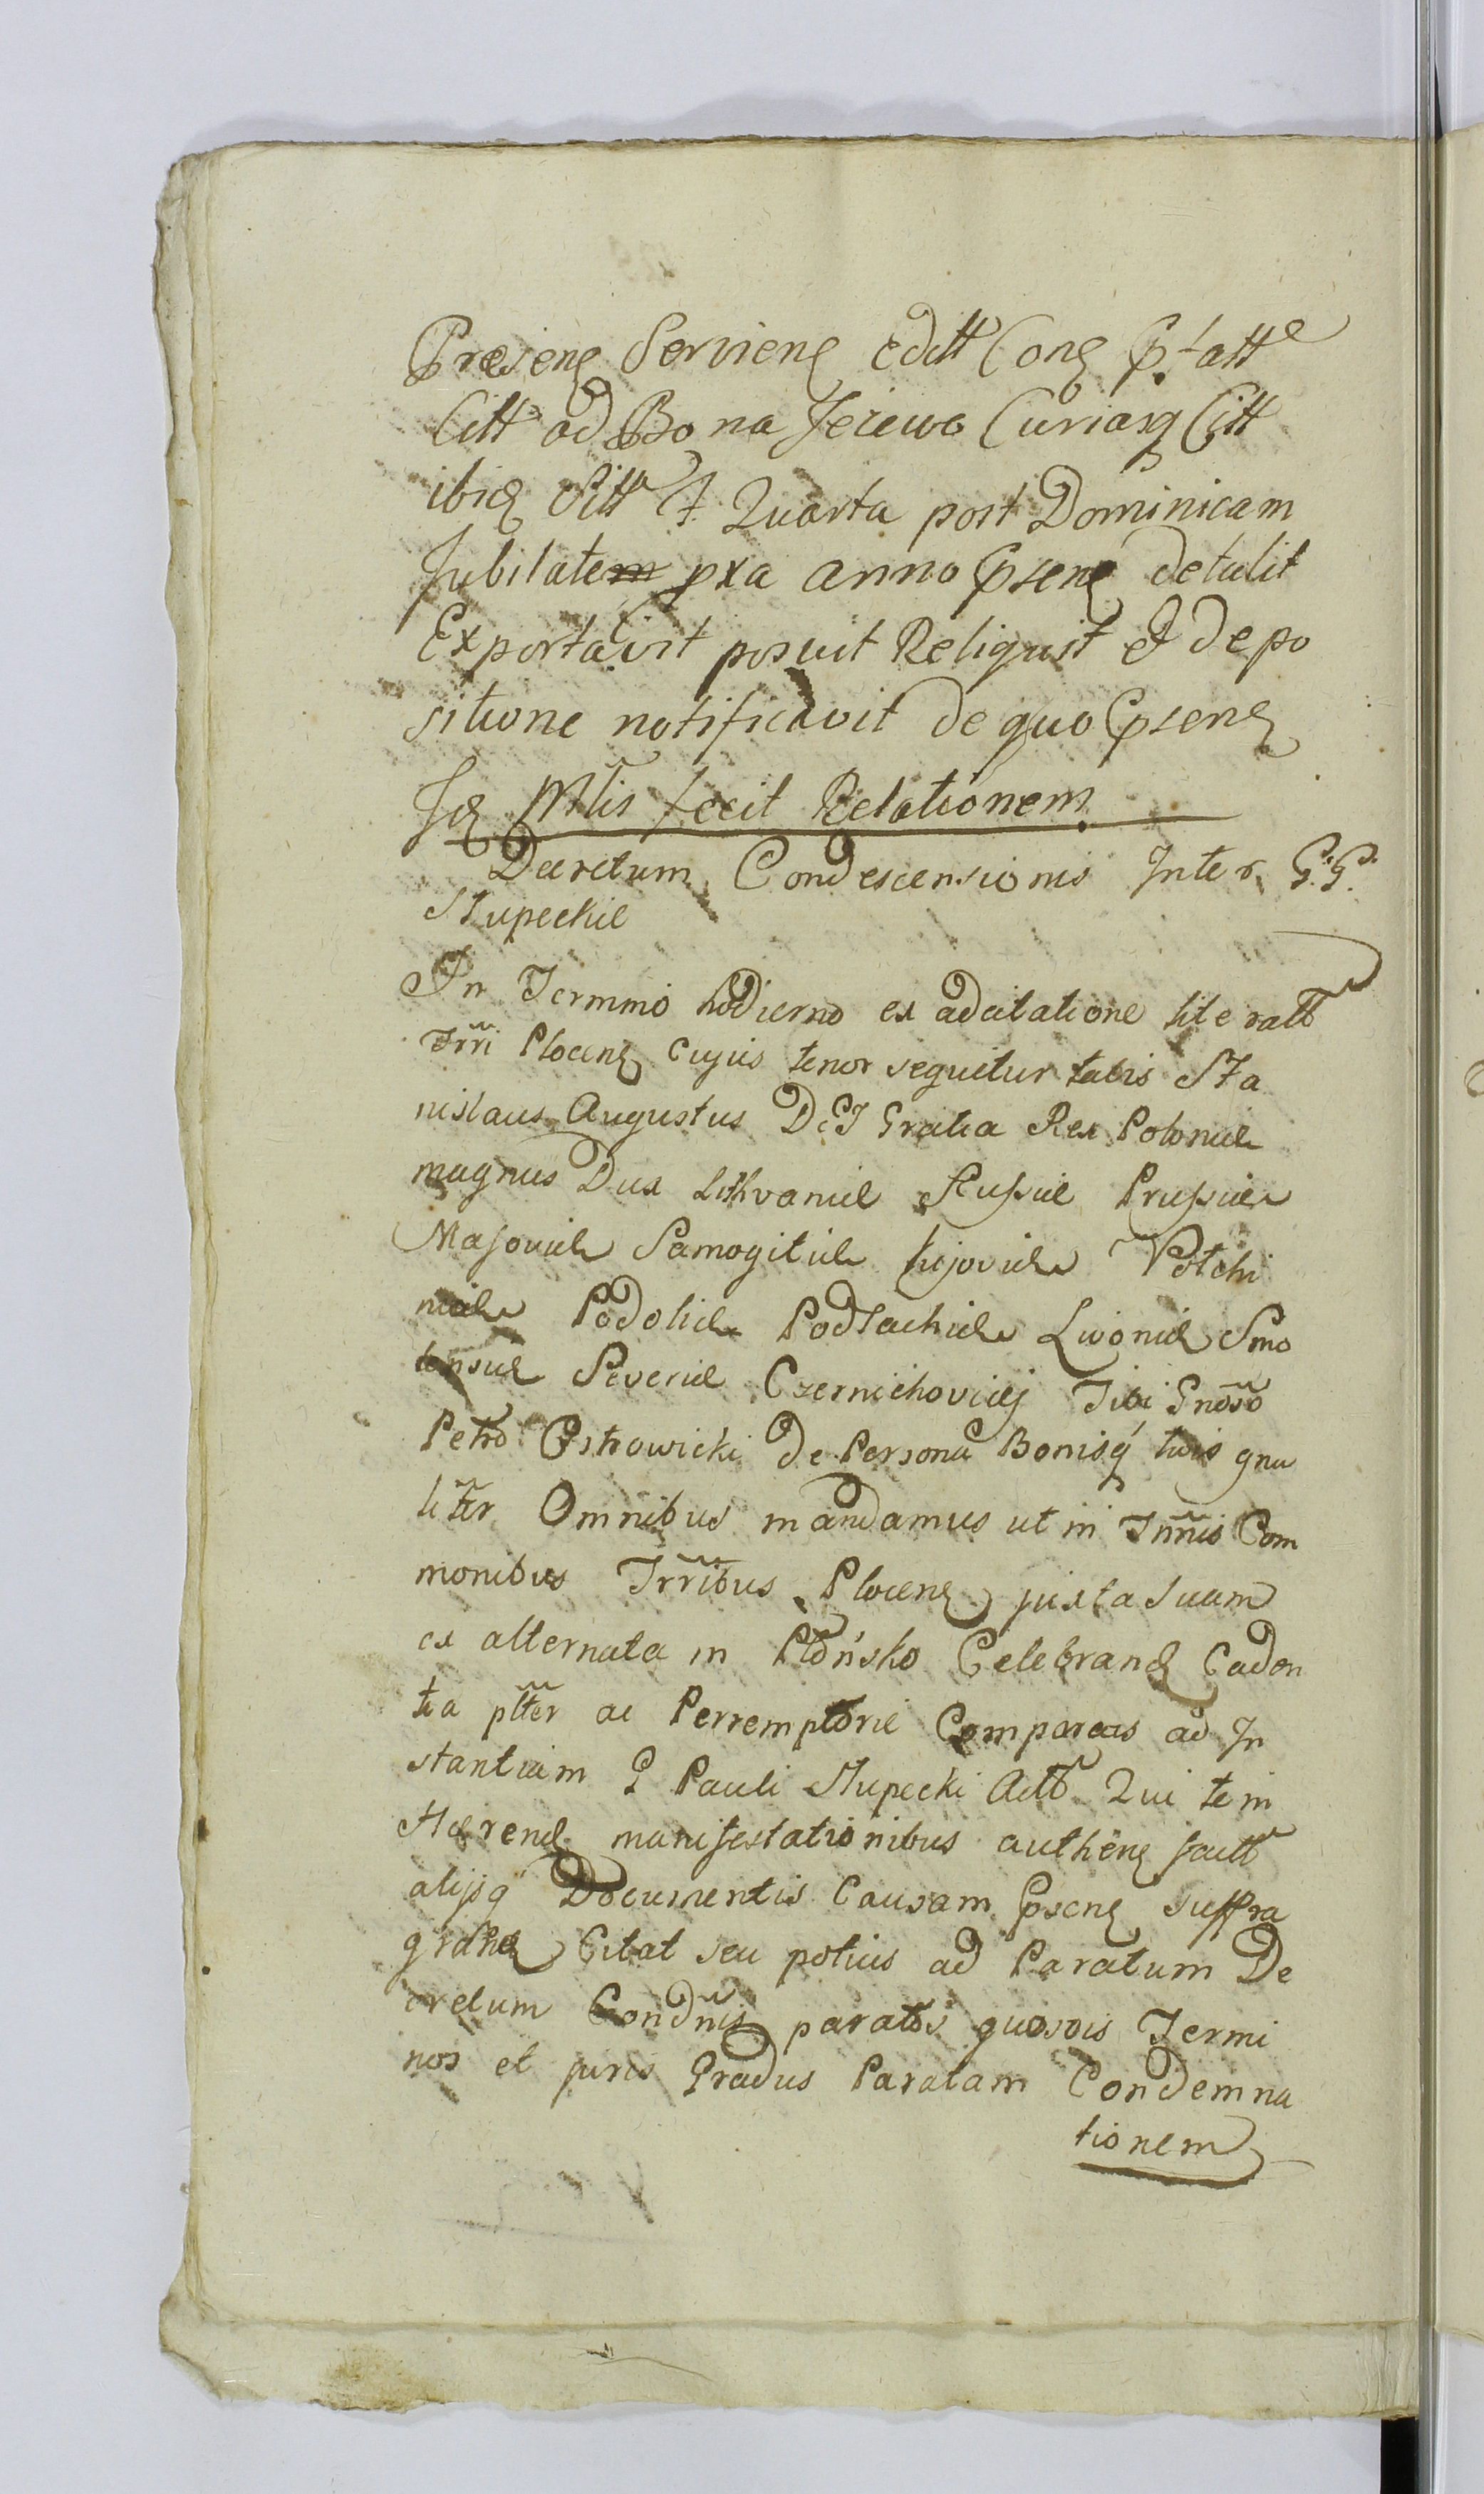 Præsens Serviens Editt Cons P:fatte
Citt ad Bona Jeżewo Curiasq Citt
ibid Sitt F. Quarta post Dominicam
Jubilatem pxa anno Psens detulit
Exportavit posuit Reliquit et depo
sitione notificavit de quo Psens
Jd Mtlis fecit Relationem.
Decretum Condescensionis Inter G:G:
Słupeckie
In Termino hodierno ex adcitatione literatt
Trri Plocens cujus tenor sequitur talis Sta
nislaus Augustus DEI Gratia Rex Poloniæ
magnus Dux Lithvaniæ Russiæ Prussiæ
Masoviæ Samogitiæ Kijoviæ Volchi
niæ Podoliæ Podlachiæ Livoniæ Smo
lensiæ Severiæ Czernichoviæq Tibi Gnoso
Petro Ostrowicki de Persona Bonisq tuis gna
liter Omnibus mandamus ut in Tnnis Com
monibus Trribus Plocens juxta suam
ex alternata in Płońsko Celebrand Caden
tia plter ac Perremptorie Compareas ad In
stantiam G Pauli Słupecki Actt Qui te in
Hærend manifestationibus authens factt
alijsq Documentis Causam Psens suffra
grand Citat seu potius ad Paratum De
cretum Condnis paratos quosvis Termi
nos et juris Gradus Paratam Condemna
tionem